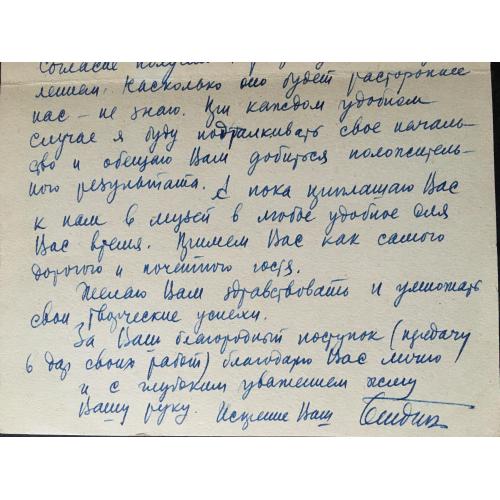 согласие получи
лением. Насколько оно будет расторопнее
нас – не знаю. При каждом удобном
случае я буду подталкивать свое началь-
ство и обещаю Вам добиться положитель-
ного результата. А пока приглашаю Вас
к нам в музей в любое удобное для
Вас время. Примем Вас как самого
дорогого и почетного гостя.
Желаю Вам здравствовать и умножать
свои творческие успехи.
За Ваш благородный поступок (передачу
в дар своих работ) благодарю Вас лично
и с глубоким уважением жму
Вашу руку. Искренне Ваш